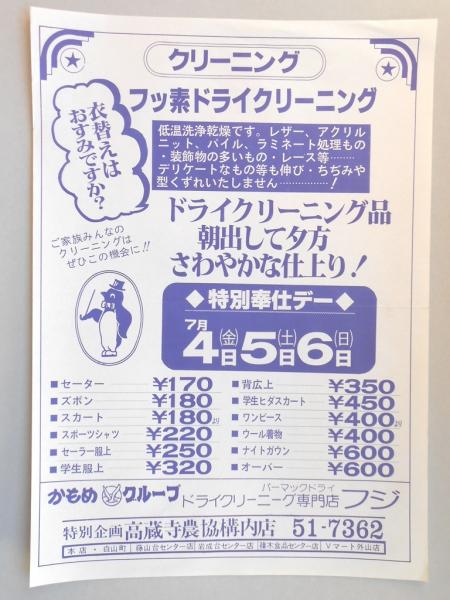 クリーニング
フッ素ドライクリーニング
衣替えは
おすみですか?
低温洗浄乾燥です。レザー、アクリル
ニット、パイル、ラミネート処理もの
・装飾物の多いもの・レース等………
デリケートなもの等も伸び・ちぢみや
型くずれいたしません……………!
ご家族みんなの
クリーニングは
ぜひこの機会に!!
ドライクリーニング品
朝出して夕方
さわやかな仕上り!
◆特別奉仕デー◆
7月
4日(金)5日(土)6日(日)
■セーター ¥170
■ズボン ¥180
■スカート ¥180より
■スポーツシャツ ¥220
■セーラー服上 ¥250
■学生服上 ¥320
■背広上 ¥350
■学生ヒダスカート ¥450
■ワンピース ¥400より
■ウール着物 ¥400
■ナイトガウン ¥600
■オーバー ¥600
かもめグループ
パーマックドライ
ドライクリーニーグ専門店 フジ
特別企画 高蔵寺農協構内店 51-7362
本店・白山町 藤山台センター店 岩成台センター店 篠木食品センター店 Vマート外山店